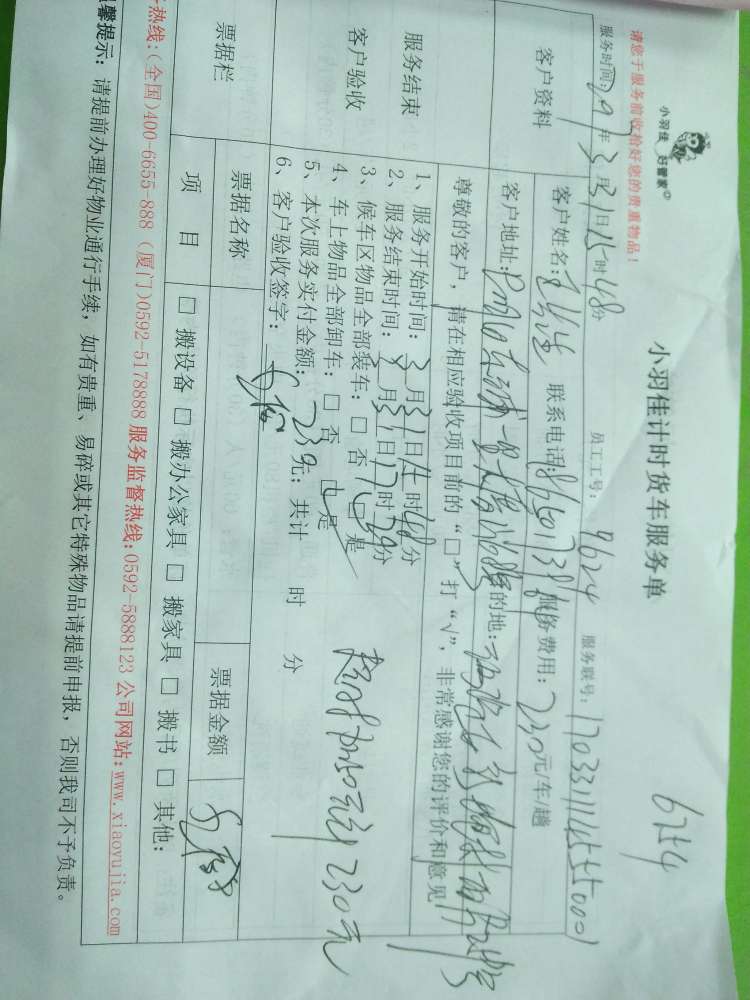 6254
小羽佳 好管家
小羽佳计时货车服务单
请您于服务前收拾好您的贵重物品！
员工工号: 9624 服务联号: 
服务时间: 年3月31日15时48分
客户资料
客户姓名: 联系电话: 服务费用: 230元/车/趟
客户地址: 目的地:
尊敬的客户，请在相应验收项目前的“□”打“√”，非常感谢您的评价和意见
服务结束
客户验收
1、服务开始时间: 3月31日15时48分
2、服务结束时间: 3月31日17时29分
3、候车区物品全部装车: □ 否 □ 是
4、车上物品全部卸车: □ 否 □ 是
5、本次服务实付金额: 230元; 共计 时 分
6、客户验收签字:
230元
票据栏
票据名称
票据金额
项 目
□ 搬设备 □ 搬办公家具 □ 搬家具 □ 搬书 □ 其他:
热线:(全国)400-6655-888 (厦门)0592-5178888 服务监督热线:0592-5888123 公司网站:www.xiaoyujia.com
馨提示: 请提前办理好物业通行手续，如有贵重、易碎或其它特殊物品请提前申报，否则我司不予负责。